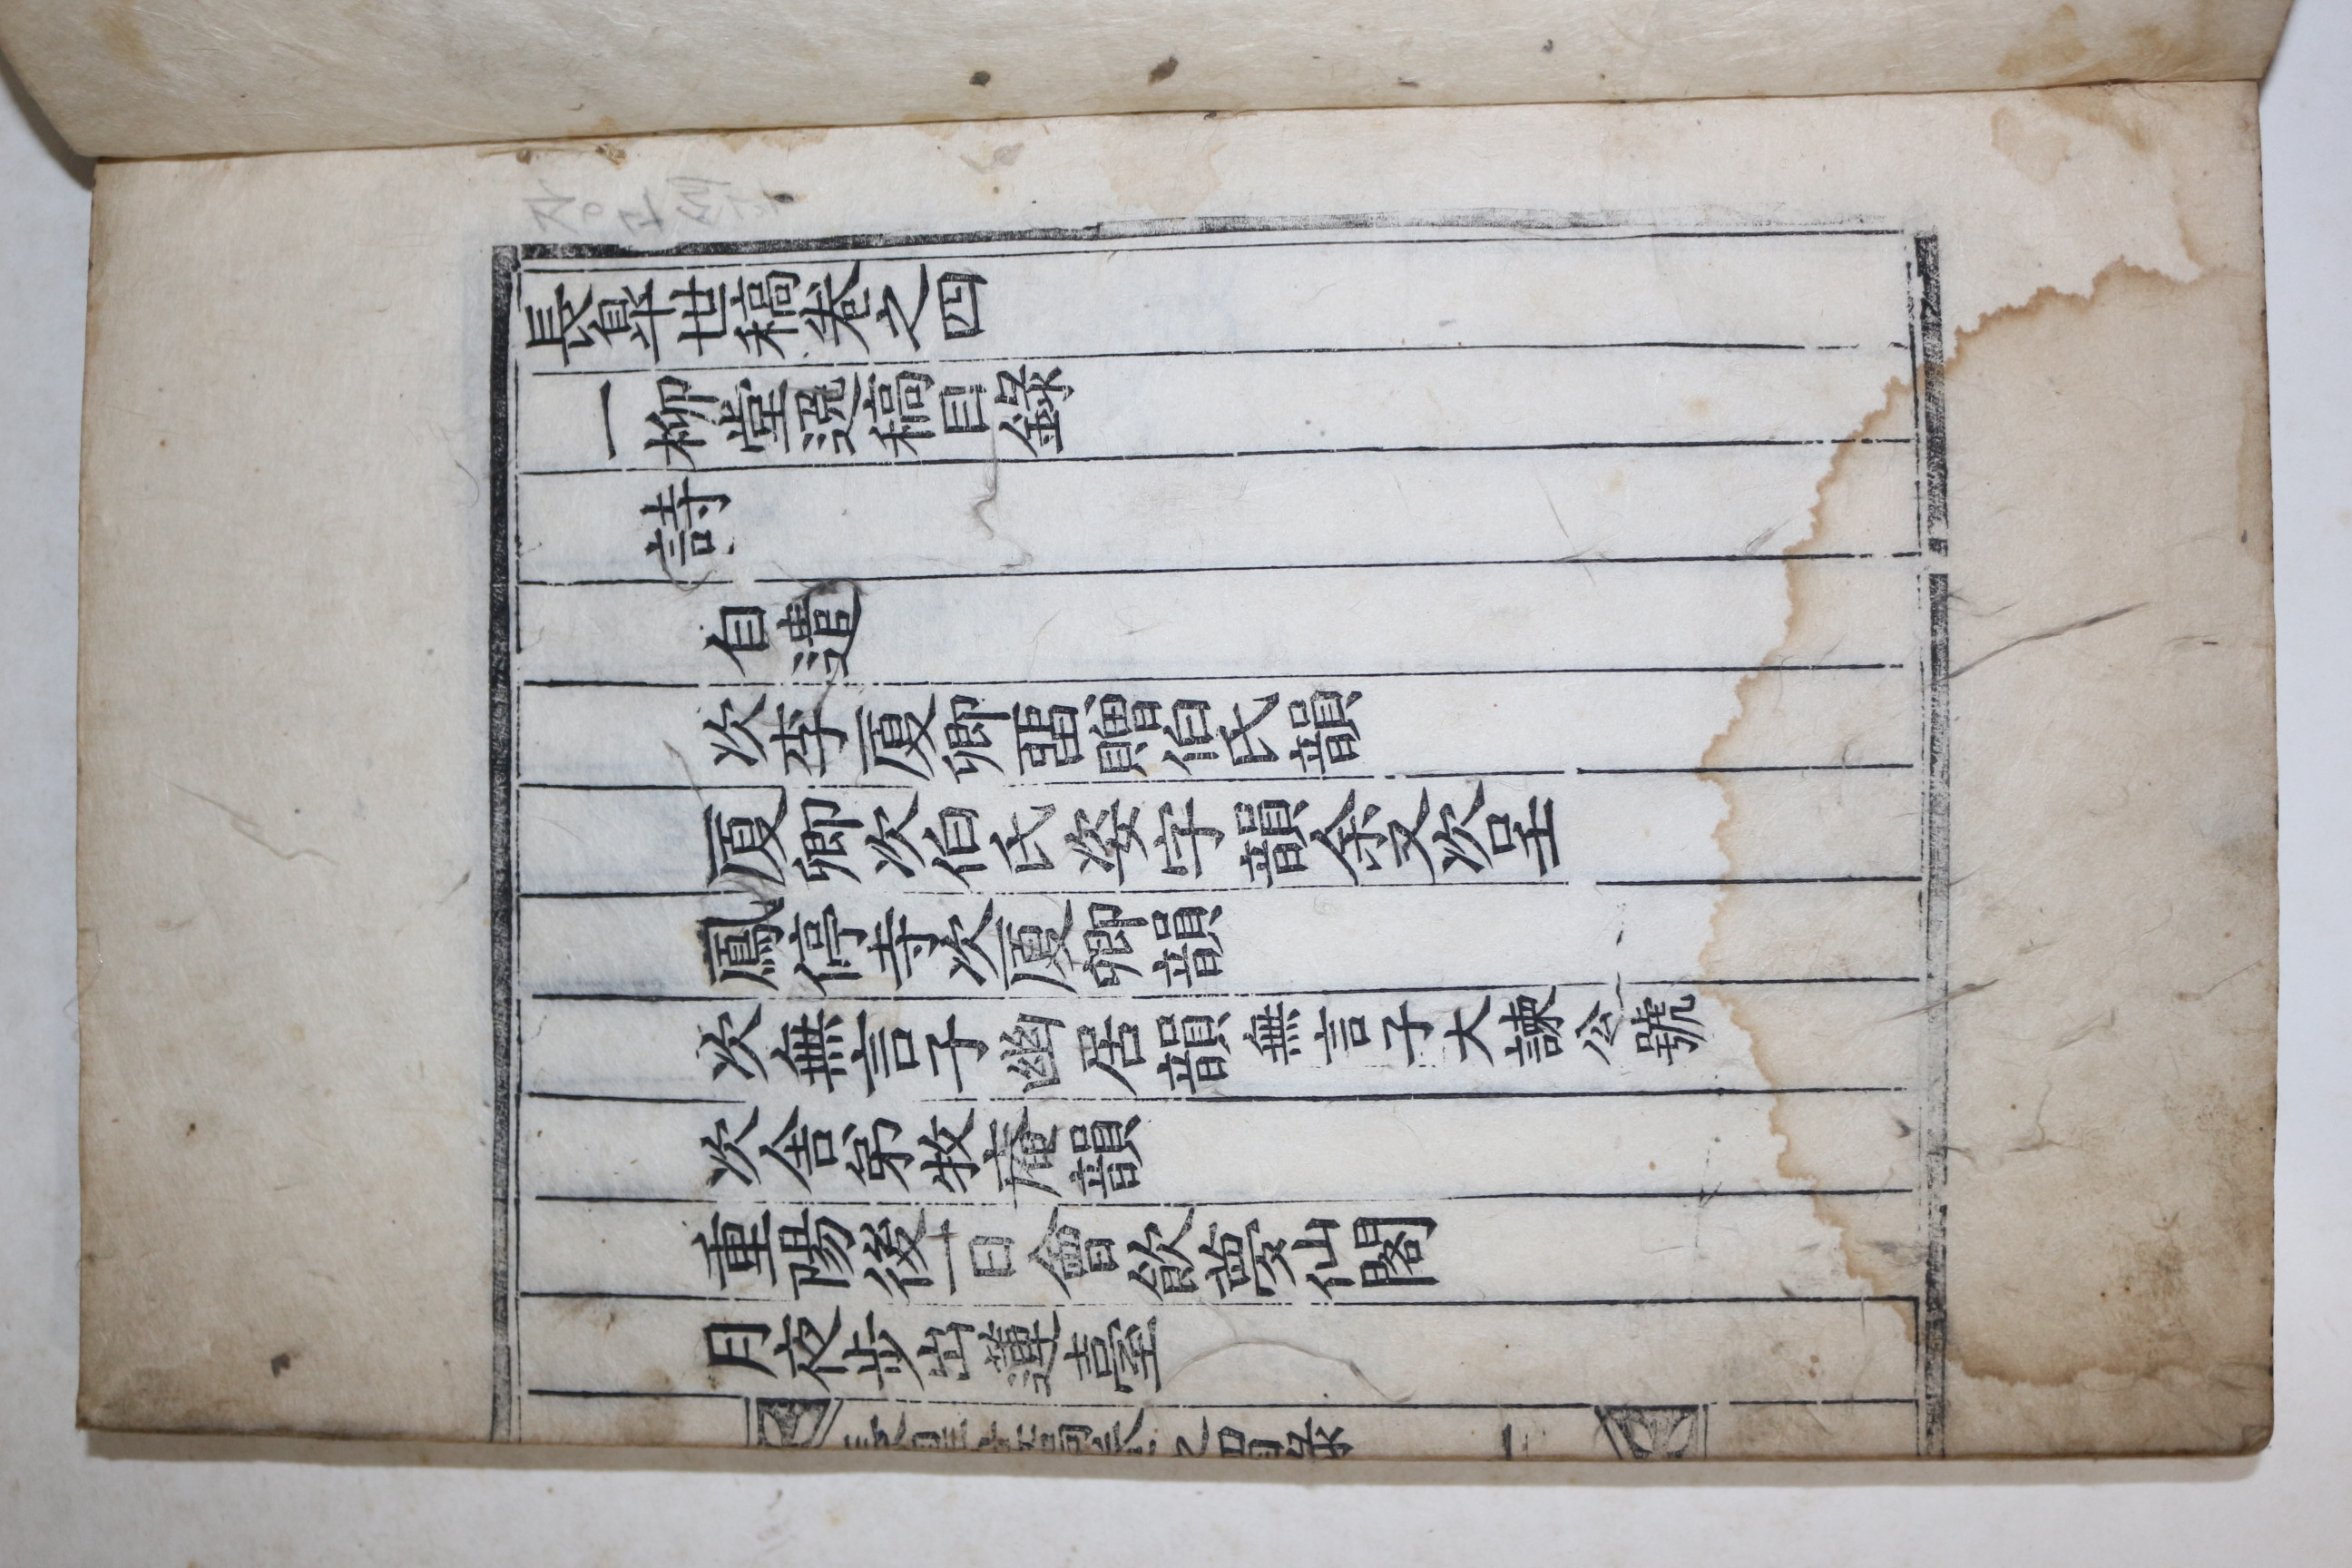 長皐世稿卷之四
一柳堂逸稿目錄
詩
自遣
次李厦卿畱贈伯氏韻
厦卿次伯氏姿字韻余又次呈
鳳停寺次厦卿韻
次無言子幽居韻無言子大諫公號
次舍弟牧庵韻
重陽後一日會飮夢仙閣
月夜步出蓮臺
長皐世稿卷之四目錄
一
장고세